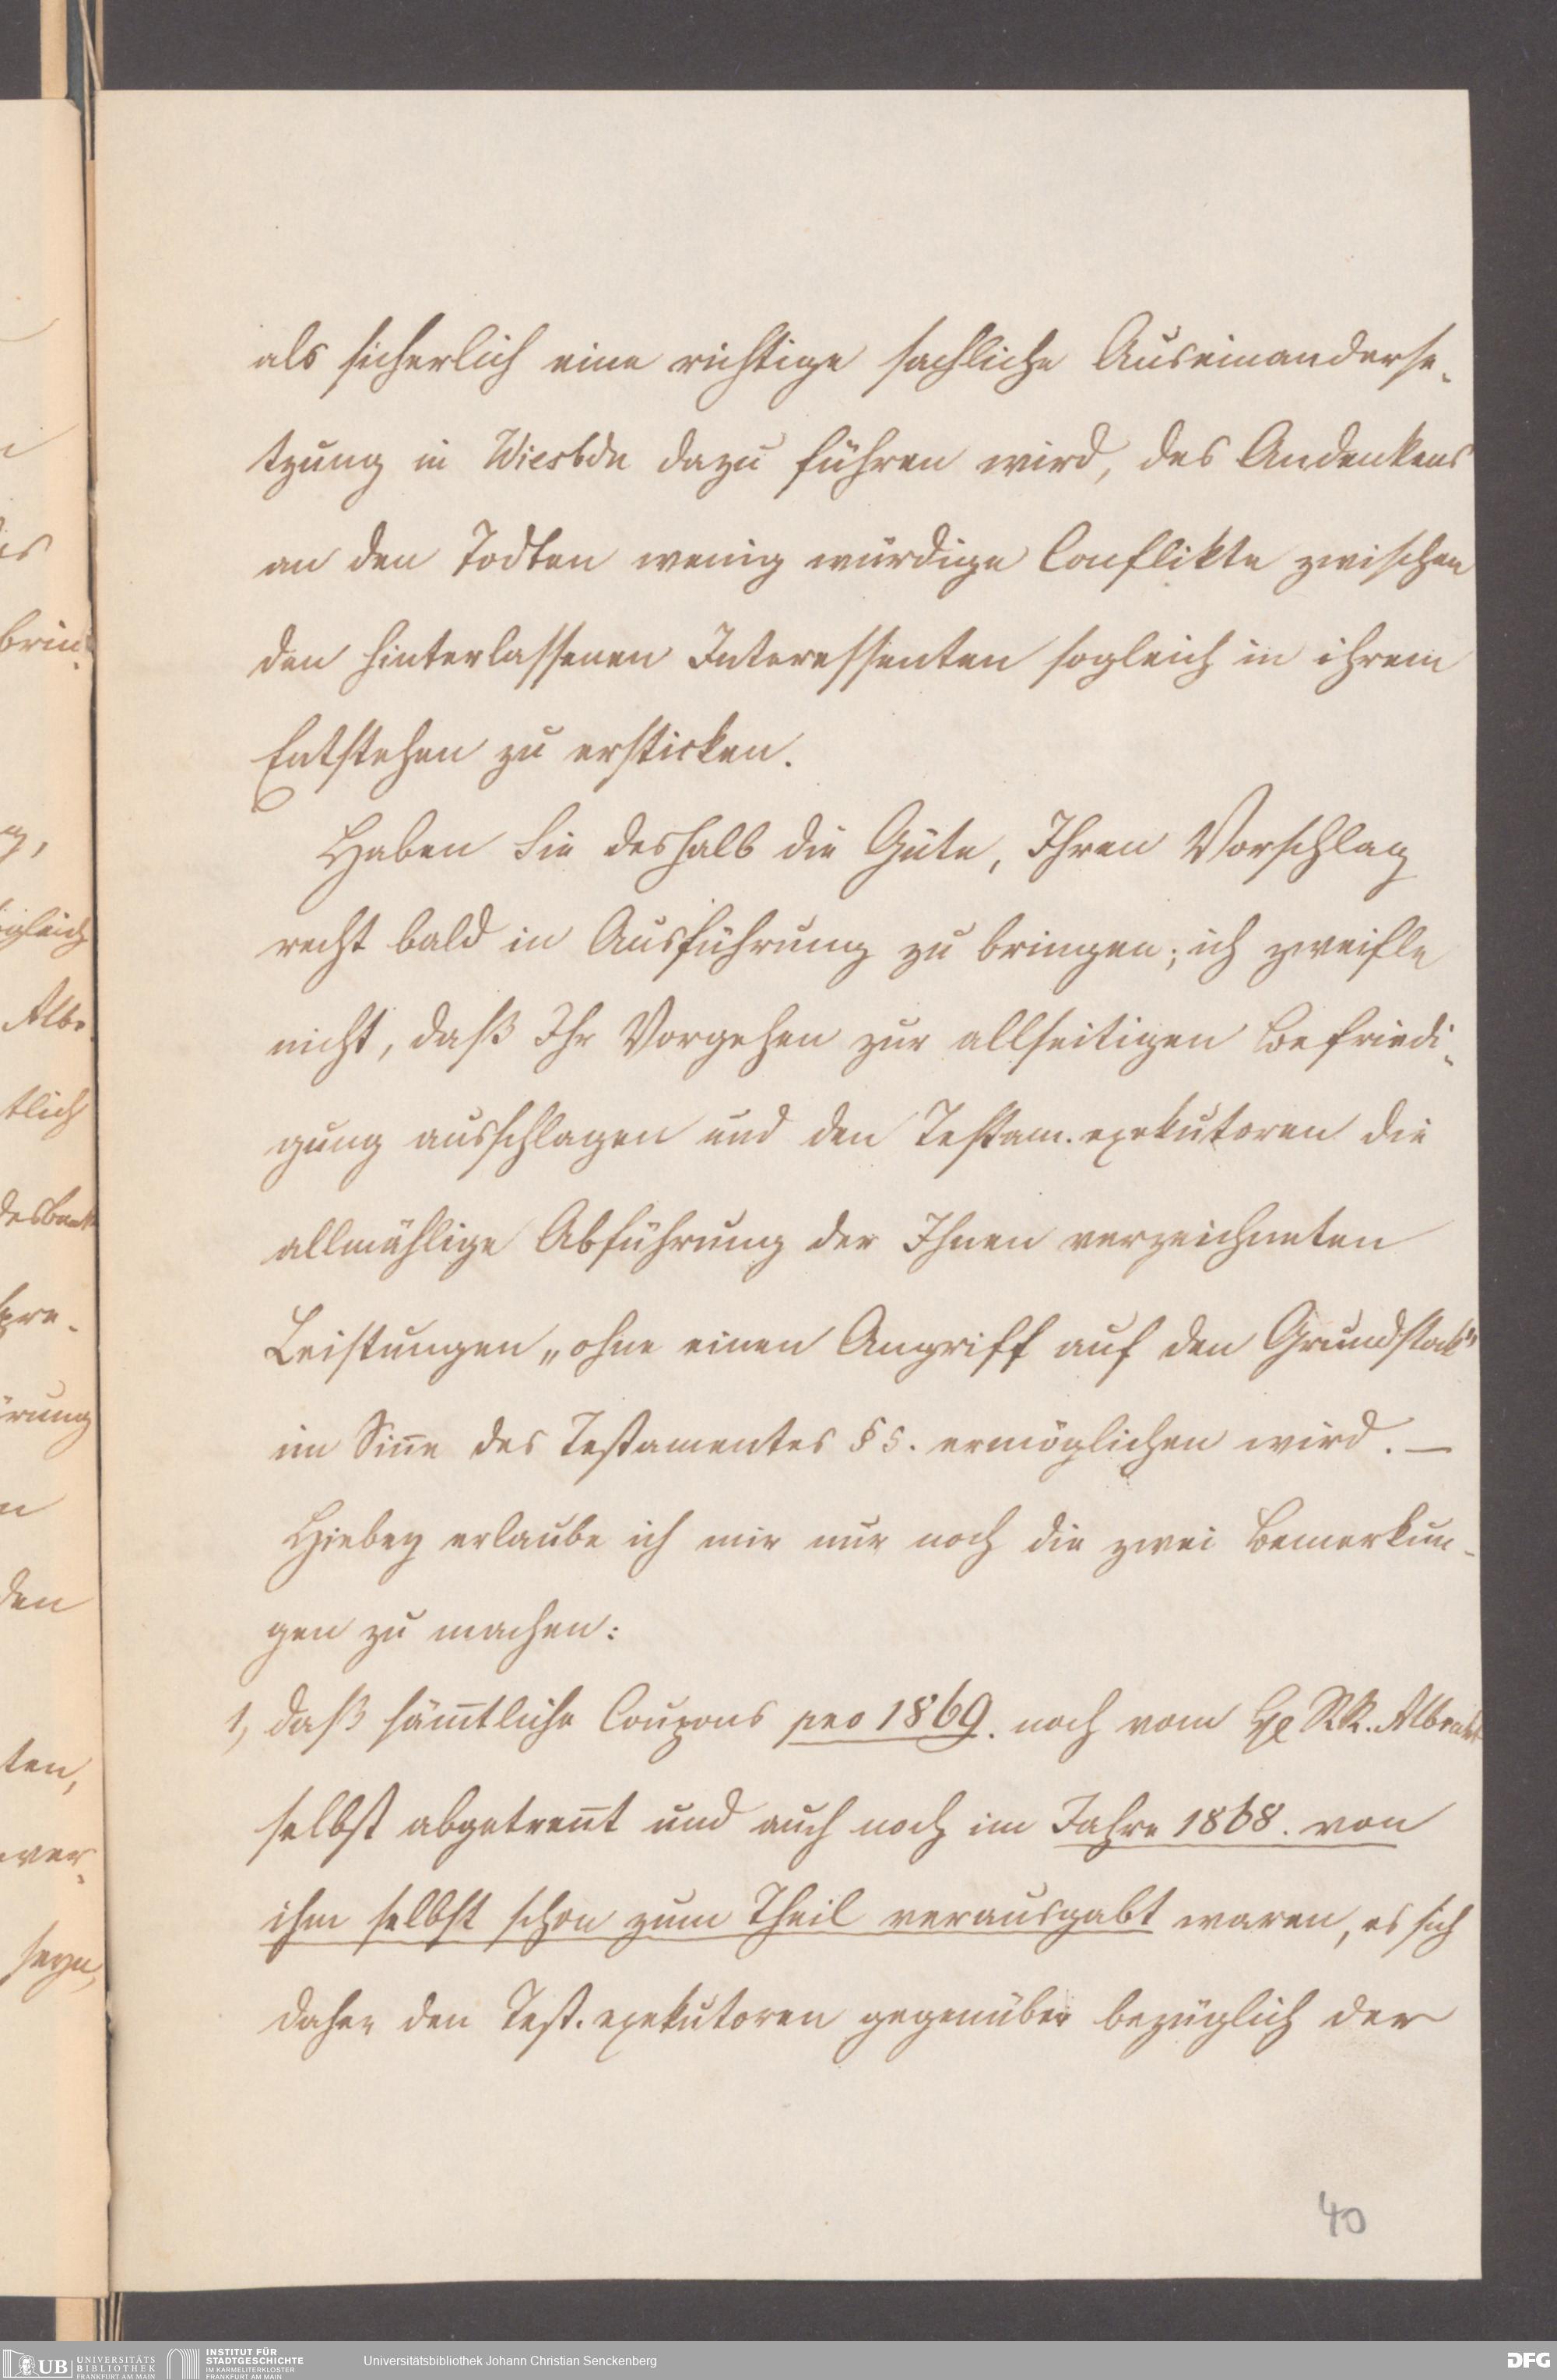 als sicherlich eine richtige sachliche Auseinanderse-
tzung in Wiesbdn dazu führen wird, des Andenkens
an den Todten wenig würdige Conflikte zwischen
den hinterlassenen Interessenten sogleich in ihrem
Entstehen zu ersticken.
Haben Sie deshalb die Güte, Ihren Vorschlag
recht bald in Ausführung zu bringen; ich zweifle
nicht, daß Ihr Vorgehen zur allseitigen Befriedi-
gung ausschlagen und den Testam.exekutoren die
allmählige Abführung der Ihnen verzeichneten
Leistungen „ohne einen Angriff auf den Grundstok"
im Sin̄e des Testamentes § 5. ermöglichen wird. —
Hiebey erlaube ich mir nur noch die zwei Bemerkun-
gen zu machen:
1, daß säm̄tliche Coupons pro 1869. noch vom RR. Albrecht
selbst abgetren̄t und auch noch im Jahre 1868. von
ihm selbst schon zum Theil verausgabt waren, es sich
daher den Test.exekutoren gegenüber bezüglich der
40
brin-
gleich
Albr
tlich
desbank
rung
den
ten,
ver-
seyn,
UB UNIVERSITÄTS
BIBLIOTHEK
FRANKFURT AM MAIN
INSTITUT FÜR
STADTGESCHICHTE
IM KARMELITERKLOSTER
FRANKFURT AM MAIN
Universitätsbibliothek Johann Christian Senckenberg
DFG